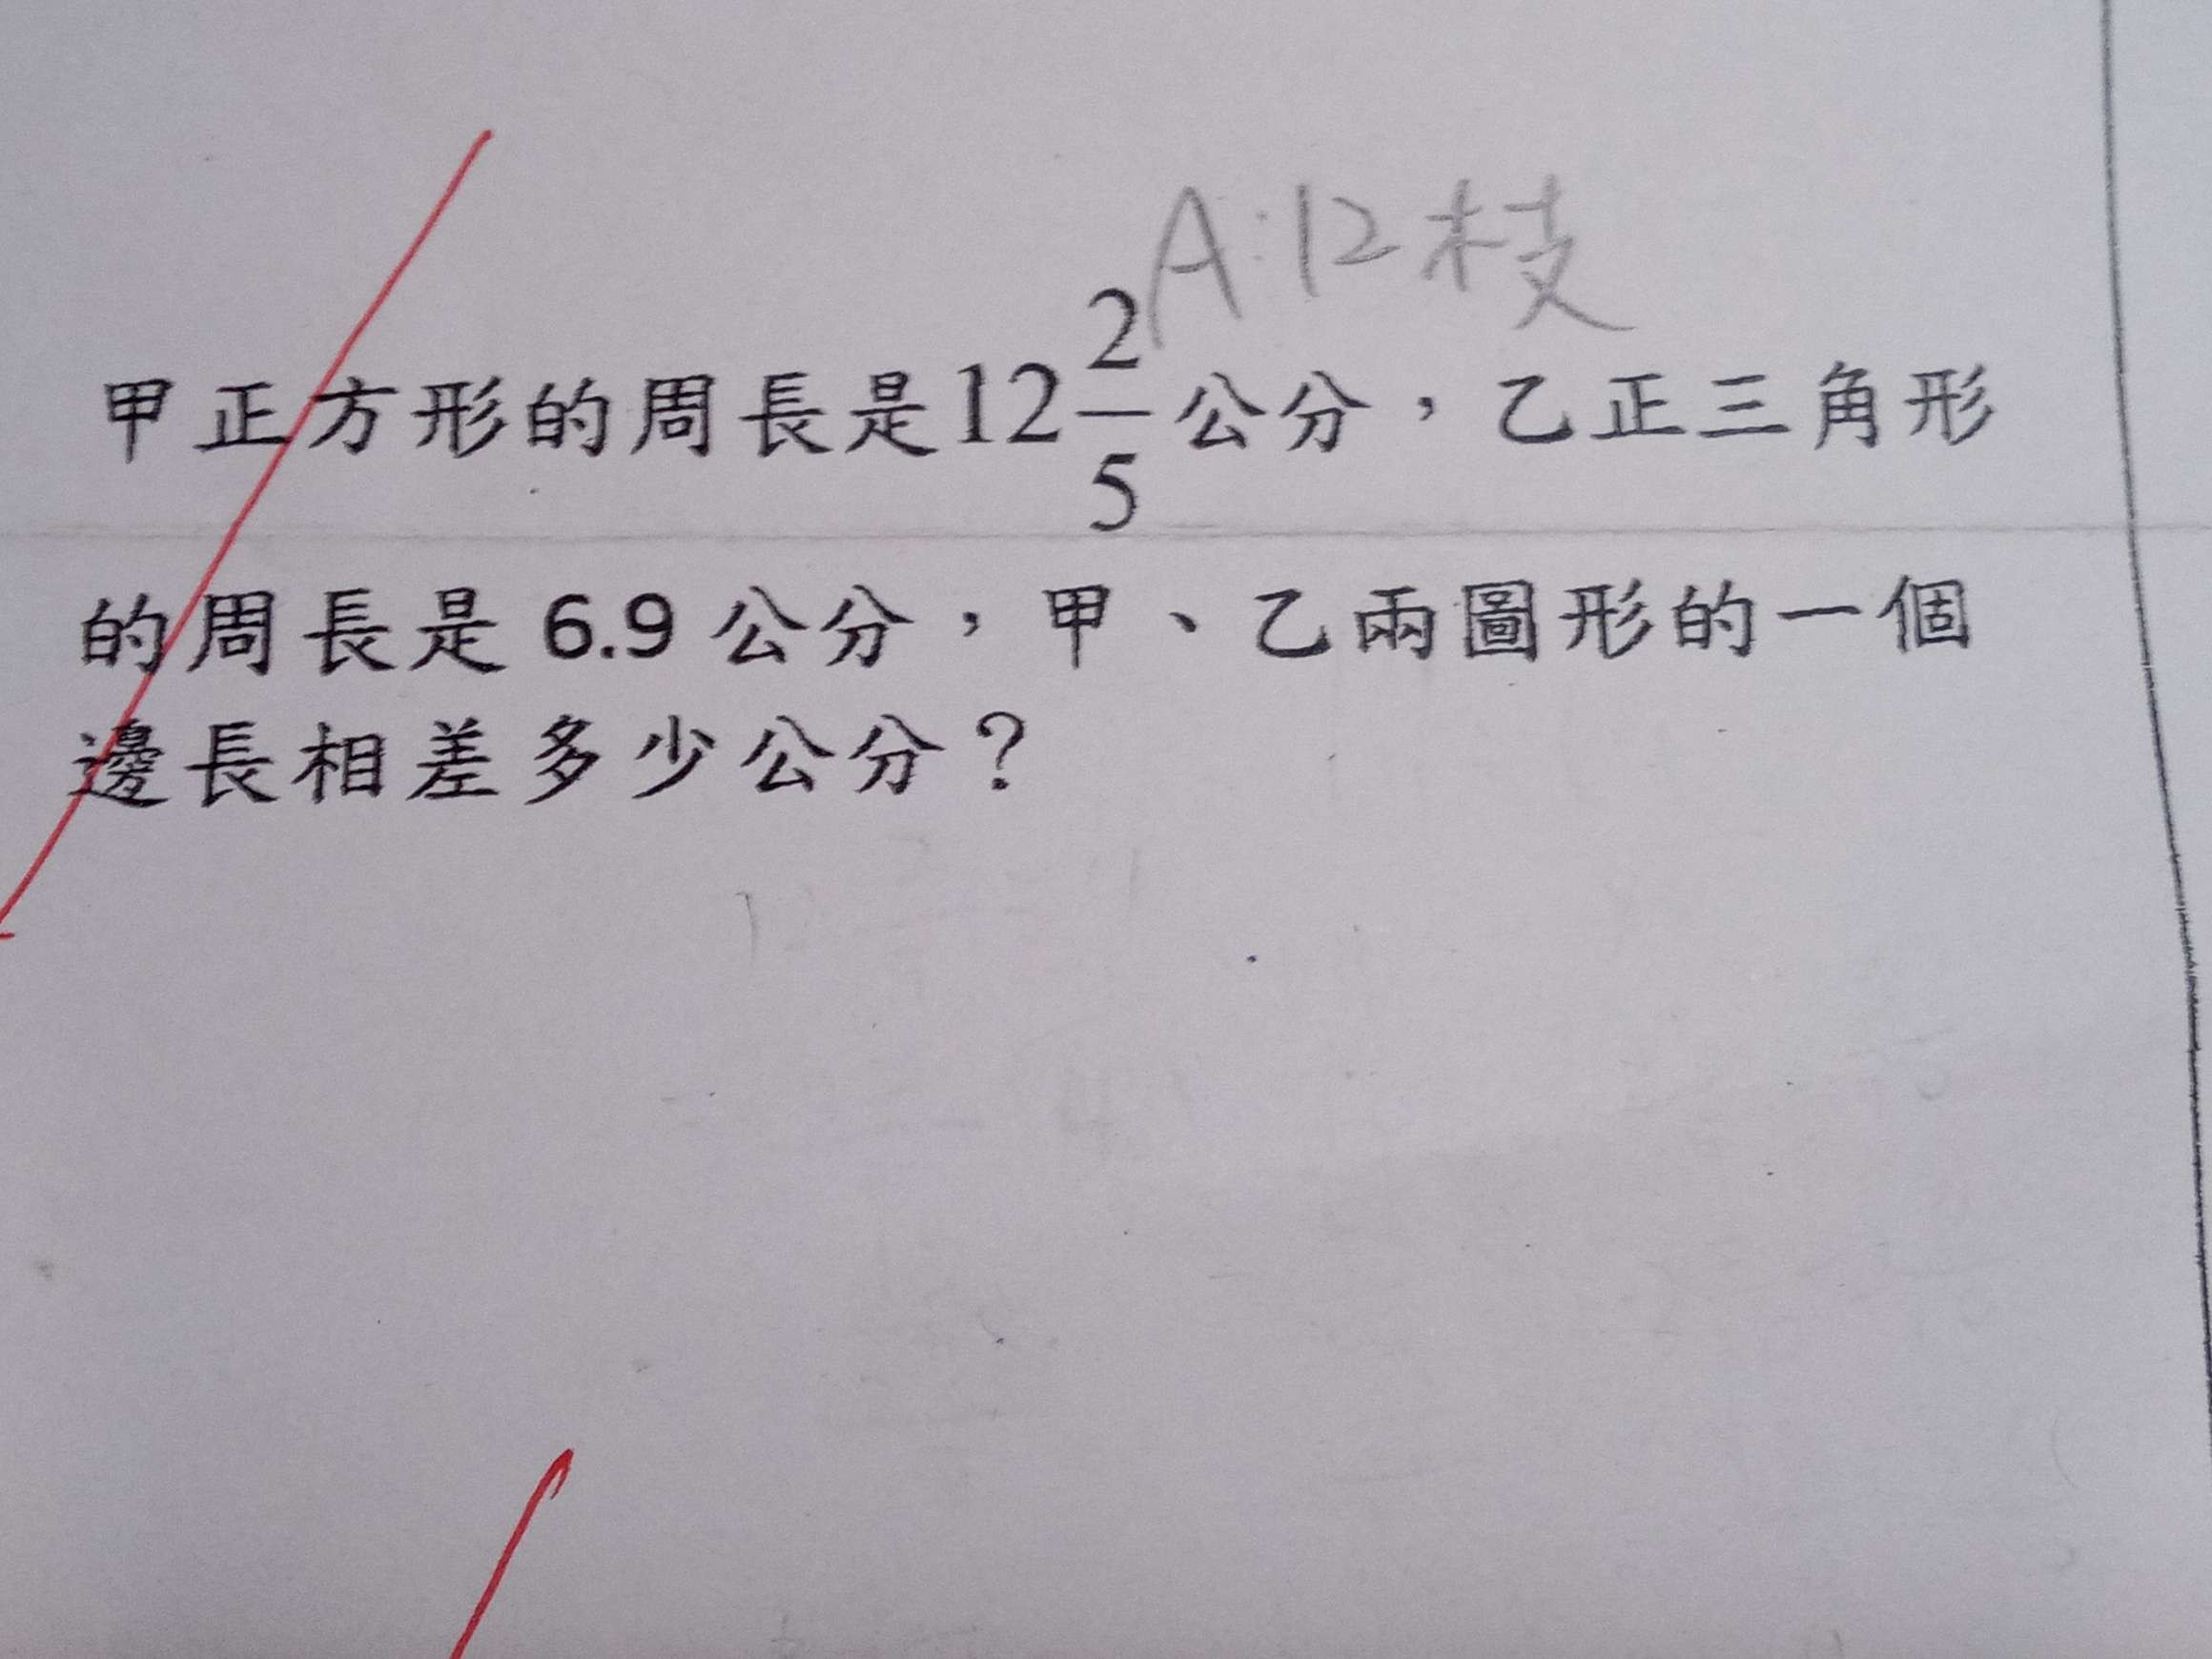 A:12枝
甲正方形的周長是12 2/5 公分，乙正三角形
的周長是 6.9 公分，甲、乙兩圖形的一個
邊長相差多少公分？